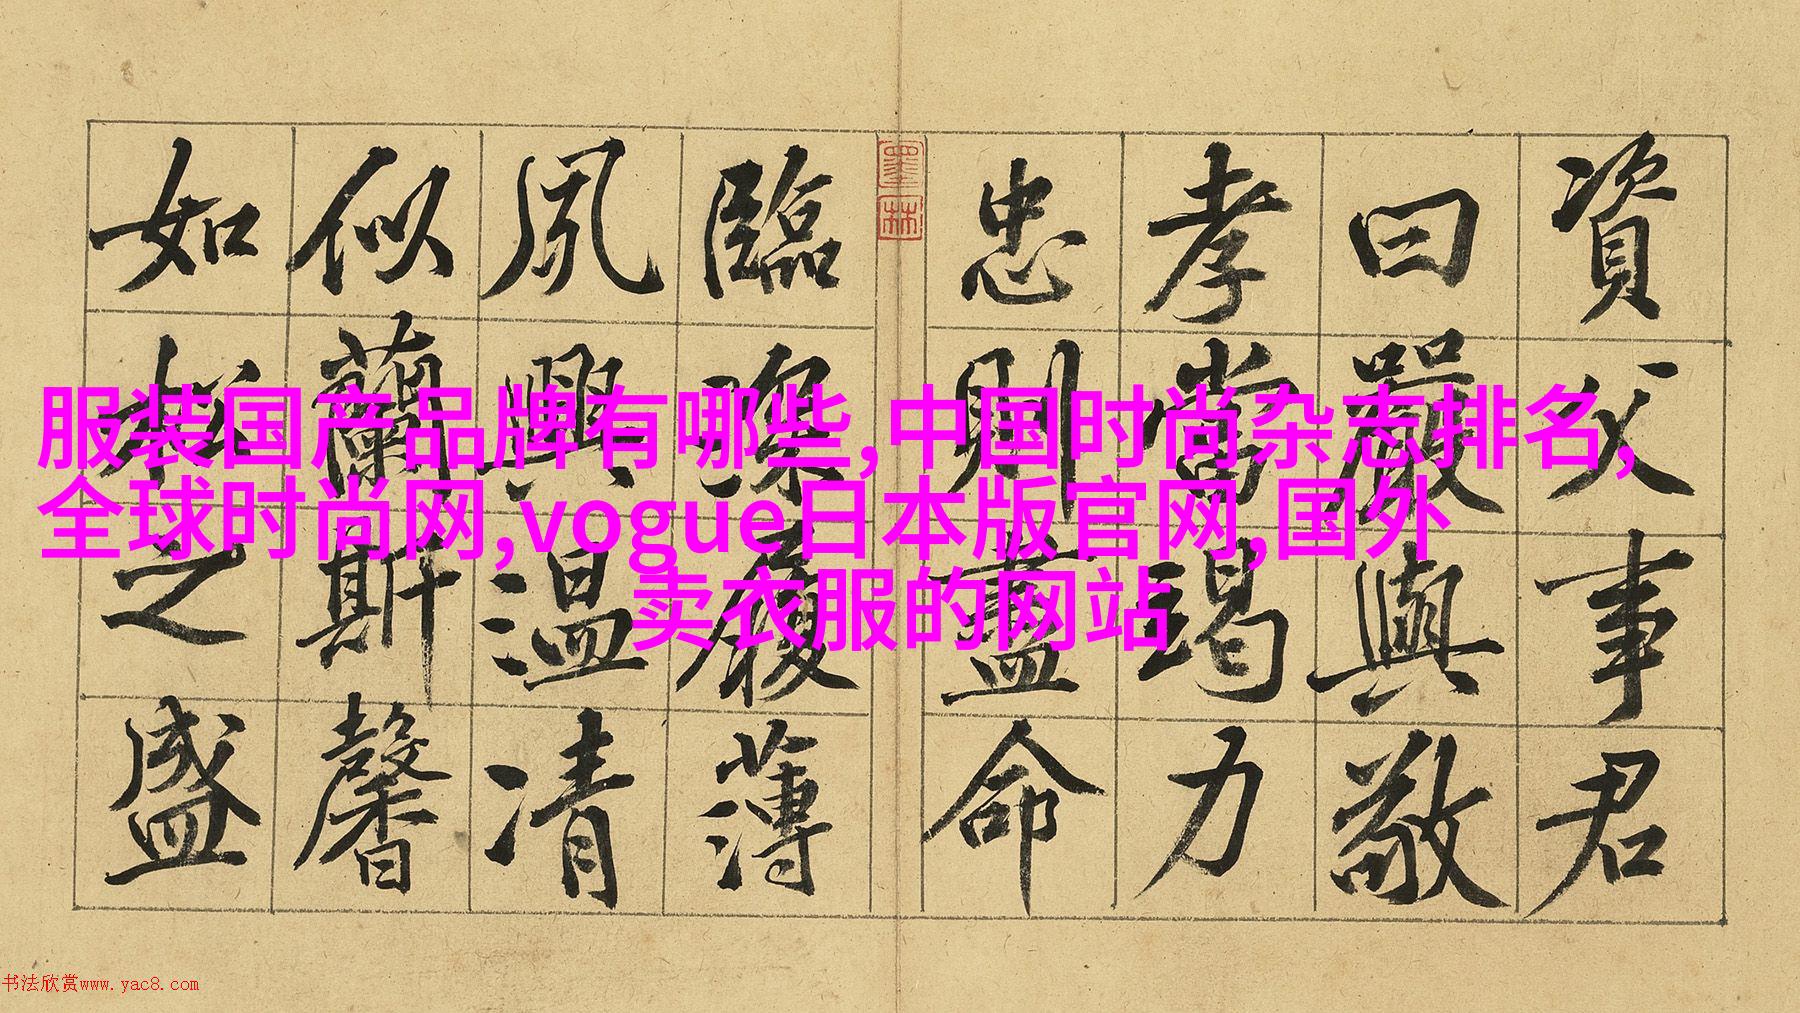 資父事君
曰嚴與敬
孝當竭力
忠則盡命
墨林
臨深履薄
夙興温凊
似蘭斯馨
如松之盛
服装国产品牌有哪些,中国时尚杂志排名,
全球时尚网,vogue日本版官网,国外
卖衣服的网站
书法欣赏www.yac8.com